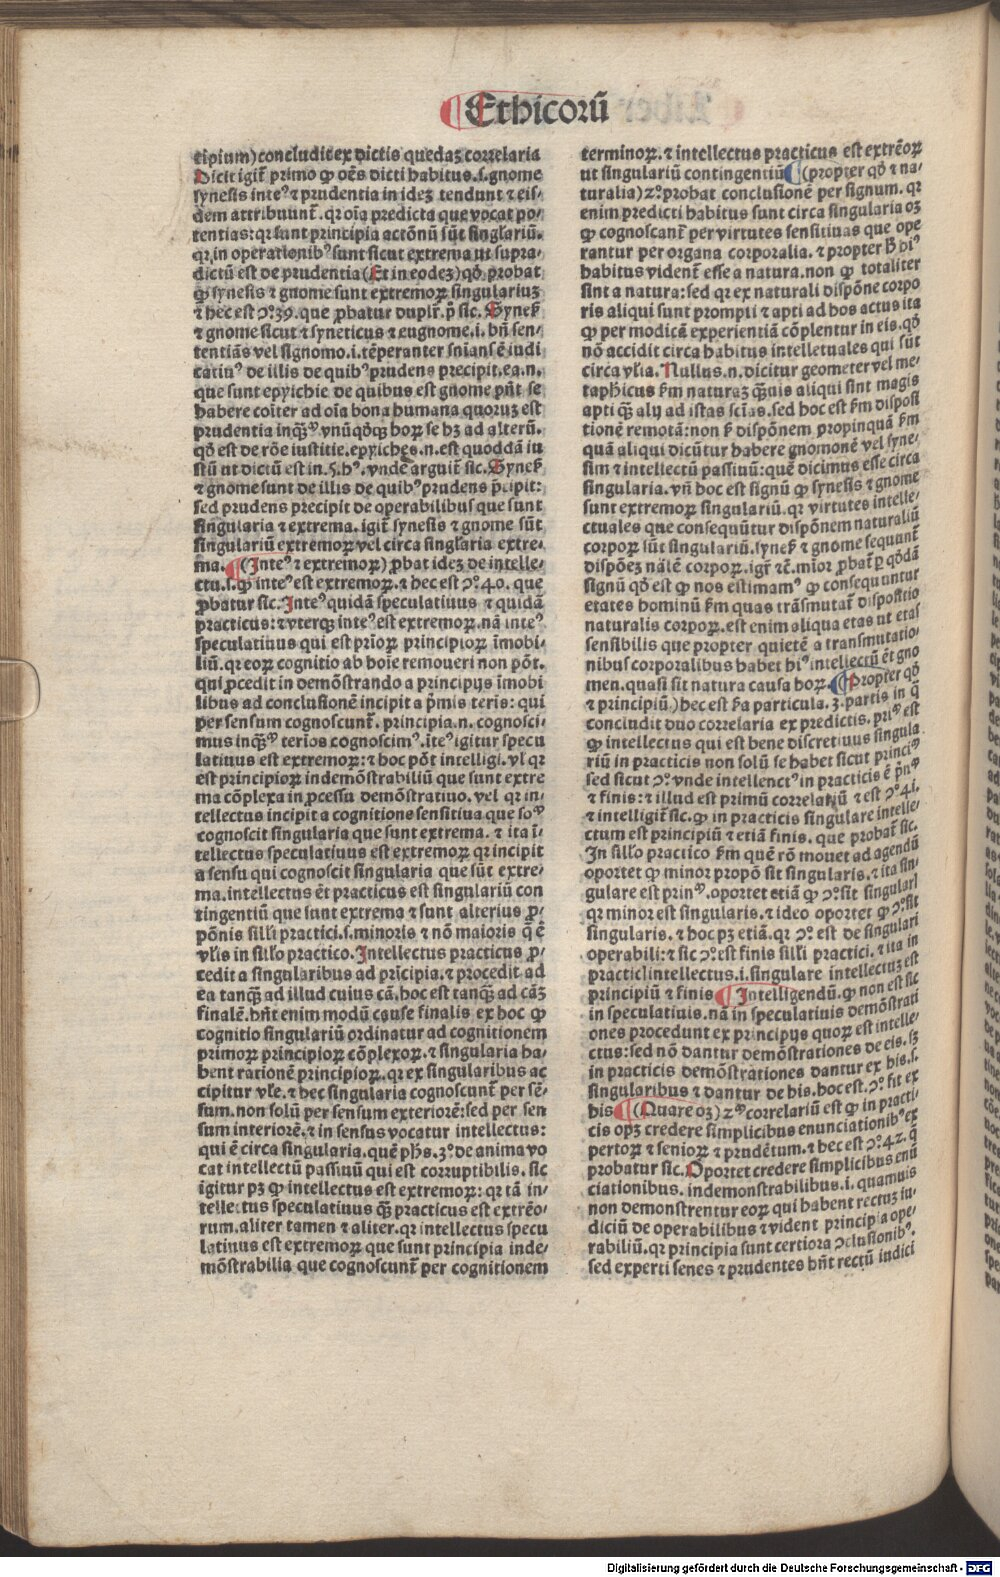 Ethicorū
cipium) concludit ex dictis quedaꝫ correlaria
Dicit igit̄ primo ꝙ oēs dicti habitus.s.gnome
synesis inteꝰ ⁊ prudentia in ideꝫ tendunt ⁊ eis-
dem attribuunt̄.qr oīa predicta que vocat po-
tentias: qr sunt principia actōnū sūt singlariū.
qr in operationibꝰ sunt sicut extrema ut supra-
dictū est de prudentia (Et in eodeꝫ) qđ probat
ꝙ synesis ⁊ gnome sunt extremoꝝ singulariuꝫ
⁊ hec est ꝯꝰ.39.que ꝓbatur duplr̄.p̄ sic. Synes̄
⁊ gnome sicut ⁊ syneticus ⁊ eugnome.i.bn̄ sen-
tentiās vel signomo.i.tēperanter sn̄ians ē iudi
catiuꝰ de illis de quibꝰ prudens precipit.ea.n.
que sunt epyichie de quibus est gnome pn̄t se
habere coīter ad oīa bona humana quoruꝫ est
prudentia inꝙ̄ꝫ vnūqđqꝫ hoꝝ se hꝫ ad alterū.
qđ est de rōe iustitie.epyiches.n.est quoddā iu
stū ut dictū est in.5.hꝰ.vnde arguit̄ sic. Synes̄
⁊ gnome sunt de illis de quibꝰ prudens p̄cipit:
sed prudens precipit de operabilibus que sunt
singularia ⁊ extrema.igit̄ synesis ⁊ gnome sūt
singulariū extremoꝝ vel circa singlaria extre-
ma. ¶(Inteꝰ ⁊ extremoꝝ) ꝓbat ideꝫ de intelle-
ctu.s.ꝙ inteꝰ est extremoꝝ.⁊ hec est ꝯꝰ.40. que
ꝓbatur sic. Inteꝰ quidā speculatiuus ⁊ quidā
practicus: ⁊ vterqꝫ inteꝰ est extremoꝝ.nā inteꝰ
speculatiuus qui est prioꝝ principioꝝ īmobi-
liū.qr eoꝝ cognitio ab hoīe remoueri non pōt.
qui ꝓcedit in demōstrando a principijs īmobi
libus ad conclusionē incipit a p̄mis teris: qui
per sensum cognoscunt̄.principia.n.cognosci-
mus inꝙ̄ꝫ terios cognoscimꝰ.iteꝰ igitur specu
latiuus est extremoꝝ: ⁊ hoc pōt intelligi.vl̄ qr
est principioꝝ indemōstrabiliū que sunt extre
ma cōplexa in ꝓcessu demōstratiuo. vel qr in-
tellectus incipit a cognitione sensitiua que soꝫ
cognoscit singularia que sunt extrema. ⁊ ita ī-
tellectus speculatiuus est extremoꝝ qr incipit
a sensu qui cognoscit singularia que sūt extre-
ma.intellectus ēt practicus est singulariū con
tingentiū que sunt extrema ⁊ sunt alterius ꝓ-
pōnis silli practici.s.minoris ⁊ nō maioris q̄ ē
vl̄is in sillo practico. Intellectus practicus ꝓ-
cedit a singularibus ad prīcipia.⁊ procedit ad
ea tanꝙ̄ ad illud cuius cā.hoc est tanꝙ̄ ad cāꝫ
finalē.hn̄t enim modū cause finalis ex hoc ꝙ
cognitio singulariū ordinatur ad cognitionem
primoꝝ principioꝝ cōplexoꝝ.⁊ singularia ha-
bent rationē principioꝝ.qr ex singularibus ac
cipitur vl̄e.⁊ hec singularia cognoscunt̄ per sē-
sum.non solū per sensum exteriorē: sed per sen
sum interiorē.⁊ in sensus vocatur intellectus:
qui ē circa singularia.quē ph̄s.3ꝰ.de anima vo
cat intellectū passiuū qui est corruptibilis. sic
īgitur pꝫ ꝙ intellectus est extremoꝝ: qr tā in-
tellectus speculatiuus ꝙ̄ practicus est extrēo-
rum.aliter tamen ⁊ aliter.qr intellectus specu
latiuus est extremoꝝ que sunt principia inde-
mōstrabilia que cognoscunt̄ per cognitionem
terminoꝝ.⁊ intellectus practicus est extrēoꝝ
ut singulariū contingentiū ¶(propter qđ ⁊ na-
turalia) 2ꝰ probat conclusionē per signum. qr
enim predicti habitus sunt circa singularia oꝫ
ꝙ cognoscant̄ per virtutes sensitiuas que ope
rantur per organa corporalia. ⁊ propter h̄ hiꝰ
habitus vident̄ esse a natura.non ꝙ totaliter
sint a natura: sed qr ex naturali dispōne corpo
ris aliqui sunt prompti ⁊ apti ad hos actus ita
ꝙ per modicā experientiā cōplentur in eis.qđ
nō accidit circa habitus intelletuales qui sūt
circa vl̄ia. Nullus.n.dicitur geometer vel me-
taphicus s̄m naturaꝫ ꝙ̄uis aliqui sint magis
apti ꝙ̄ alij ad istas scīas.sed hoc est s̄m disposi
tionē remotā: non s̄ dispōnem propinquā s̄m
quā aliqui dicūtur habere gnomonē vel syne-
sim ⁊ intellectū passiuū: quē dicimus esse circa
singularia.vn̄ hoc est signū ꝙ synesis ⁊ gnome
sunt extremoꝝ singulariū.qr virtutes intelle-
ctuales que consequūtur dispōnem naturaliū
corpoꝝ sūt singulariū.synes̄ ⁊ gnome sequunt̄
dispōeꝫ nālē corpoꝝ.igr̄ ⁊c̄.mīor ꝓbat̄ ꝑ qđdā
signū qđ est ꝙ nos estimamꝰ ꝙ consequuntur
etates hominū s̄m quas trāsmutat̄ dispositio
naturalis corpoꝝ.est enim aliqua etas ut etas
sensibilis que propter quietē a transmutatio-
nibus corporalibus habet hiꝰ intellectū ēt gno
men.quasi sit natura causa hoꝝ. ¶(Propter qđ
⁊ principiū) hec est s̄a particula.3.partis in q̄
concludit duo correlaria ex predictis.priꝫ est
ꝙ intellectus qui est bene discretiuus singula
riū in practicis non solū se habet sicut princiꝫ
sed sicut ꝯꝰ.vnde intellenctꝰ in practicis ē p̄nꝫ
⁊ finis: ⁊ illud est primū correlariū ⁊ est ꝯꝰ.41.
⁊ intelligit̄ sic.ꝙ in practicis singulare intelle-
ctum est principiū ⁊ etiā finis. que probat̄ sic.
In sillo practico s̄m quē rō mouet ad agendū
oportet ꝙ minor propō sit singularis.⁊ ita sin-
gulare est prinꝫ.oportet etiā ꝙ ꝯꝰ.sit singulari
qr minor est singularis.⁊ ideo oportet ꝙ ꝯꝰ.sit
singularis.⁊ hoc pꝫ etiā.qr ꝯꝰ est de singulari
operabili: ⁊ sic ꝯꝰ.est finis silli practici. ⁊ ita in
practici intellectus.i.singulare intellectuꝫ est
principiū ⁊ finis ¶Intelligendū.ꝙ non est sic
in speculatiuis.nā in speculatiuis demōstrati
ones procedunt ex principijs quoꝝ est intelle-
ctus: sed nō dantur demōstrationes de eis.sꝫ
in practicis demōstrationes dantur ex his.s.
singularibus ⁊ dantur de his.hoc est.ꝯꝰ fit ex
his ¶(Quare oꝫ) 2ꝫ correlariū est ꝙ in practi-
cis opꝫ credere simplicibus enunciationibꝰ ex
pertoꝝ ⁊ senioꝝ ⁊ prudētum.⁊ hec est ꝯꝰ.42. q̄
probatur sic. Oportet credere simplicibus enū
ciationibus. indemonstrabilibus.i. quamuis
non demonstrentur eoꝝ qui habent rectuꝫ iu-
diciū de operabilibus ⁊ vident principia ope-
rabiliū.qr principia sunt certiora ꝯclusionibꝰ.
sed experti senes ⁊ prudentes hn̄t rectū iudici
Digitalisierung gefördert durch die Deutsche Forschungsgemeinschaft - DFG